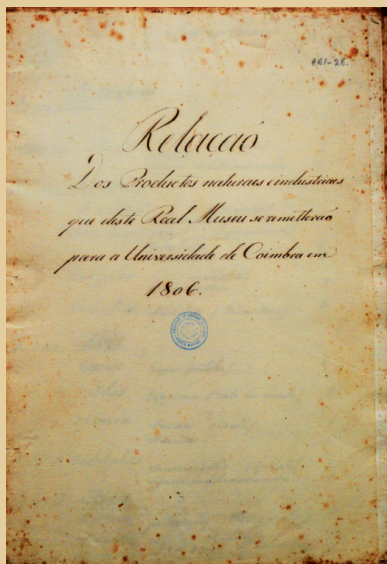 ARI-26.
Relação
Dos Productos naturaes e industriaes
que deste Real Museu se remetterão
para a Universidade de Coimbra em
1806.